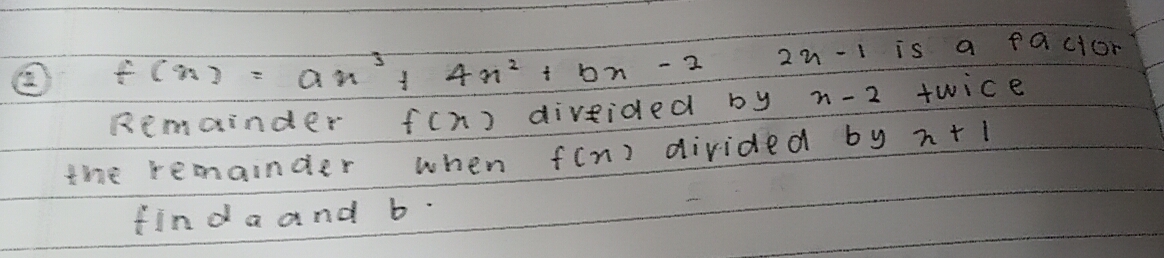 ② f(x) = ax³ + 4x² + bx - 2 2x - 1 is a factor
Remainder f(x) divided by x - 2 twice
the remainder when f(x) divided by x + 1
find a and b .